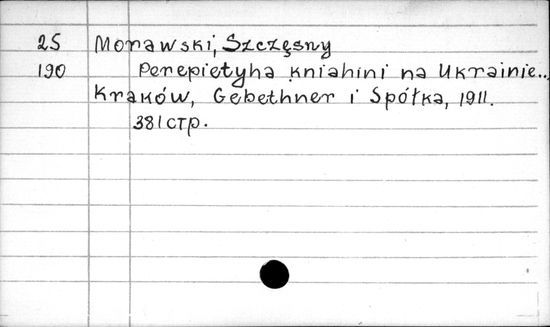 25 Morawski, Szczęsny
190 Perepietyha kniahini na Ukrainie..
Kraków, Gebethner i Spółka, 1911.
381 стр.